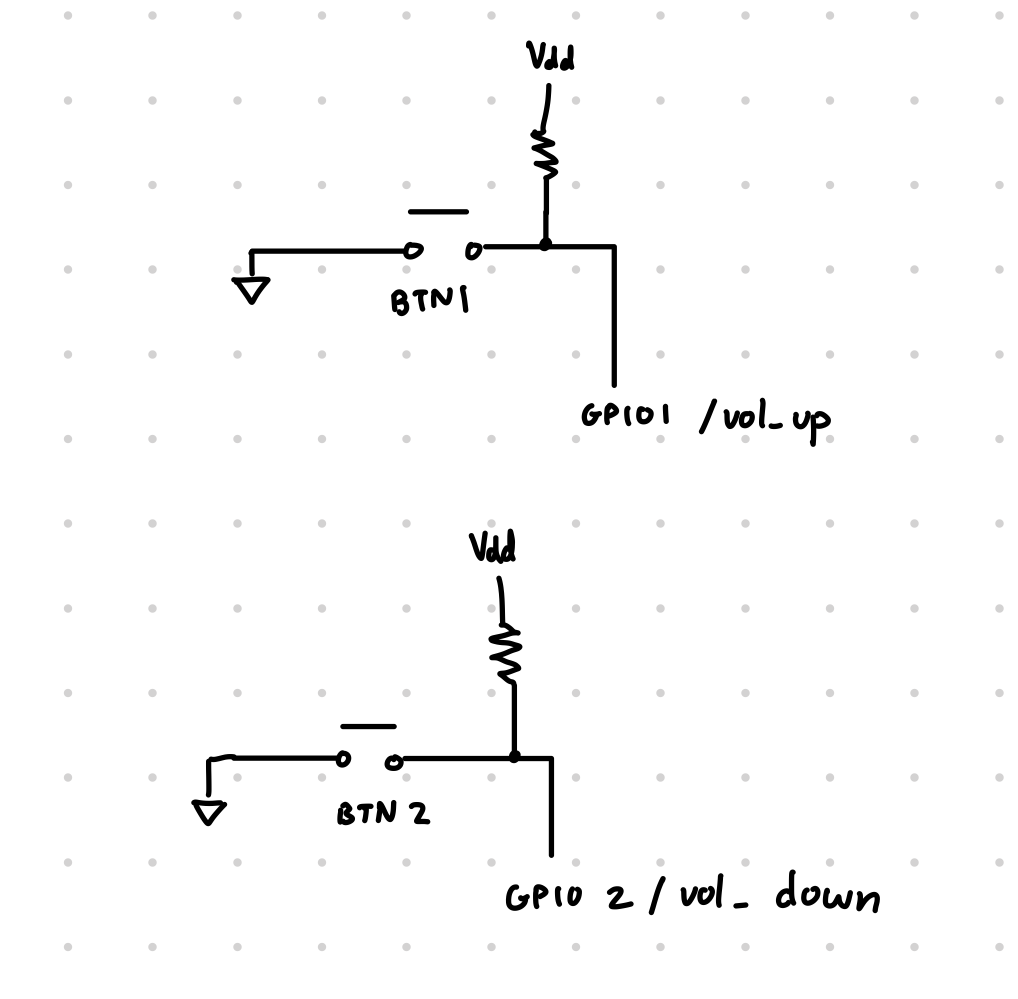 Vdd
BTN1
GPIO1 /vol_up
Vdd
BTN 2
GPIO 2 / vol_ down